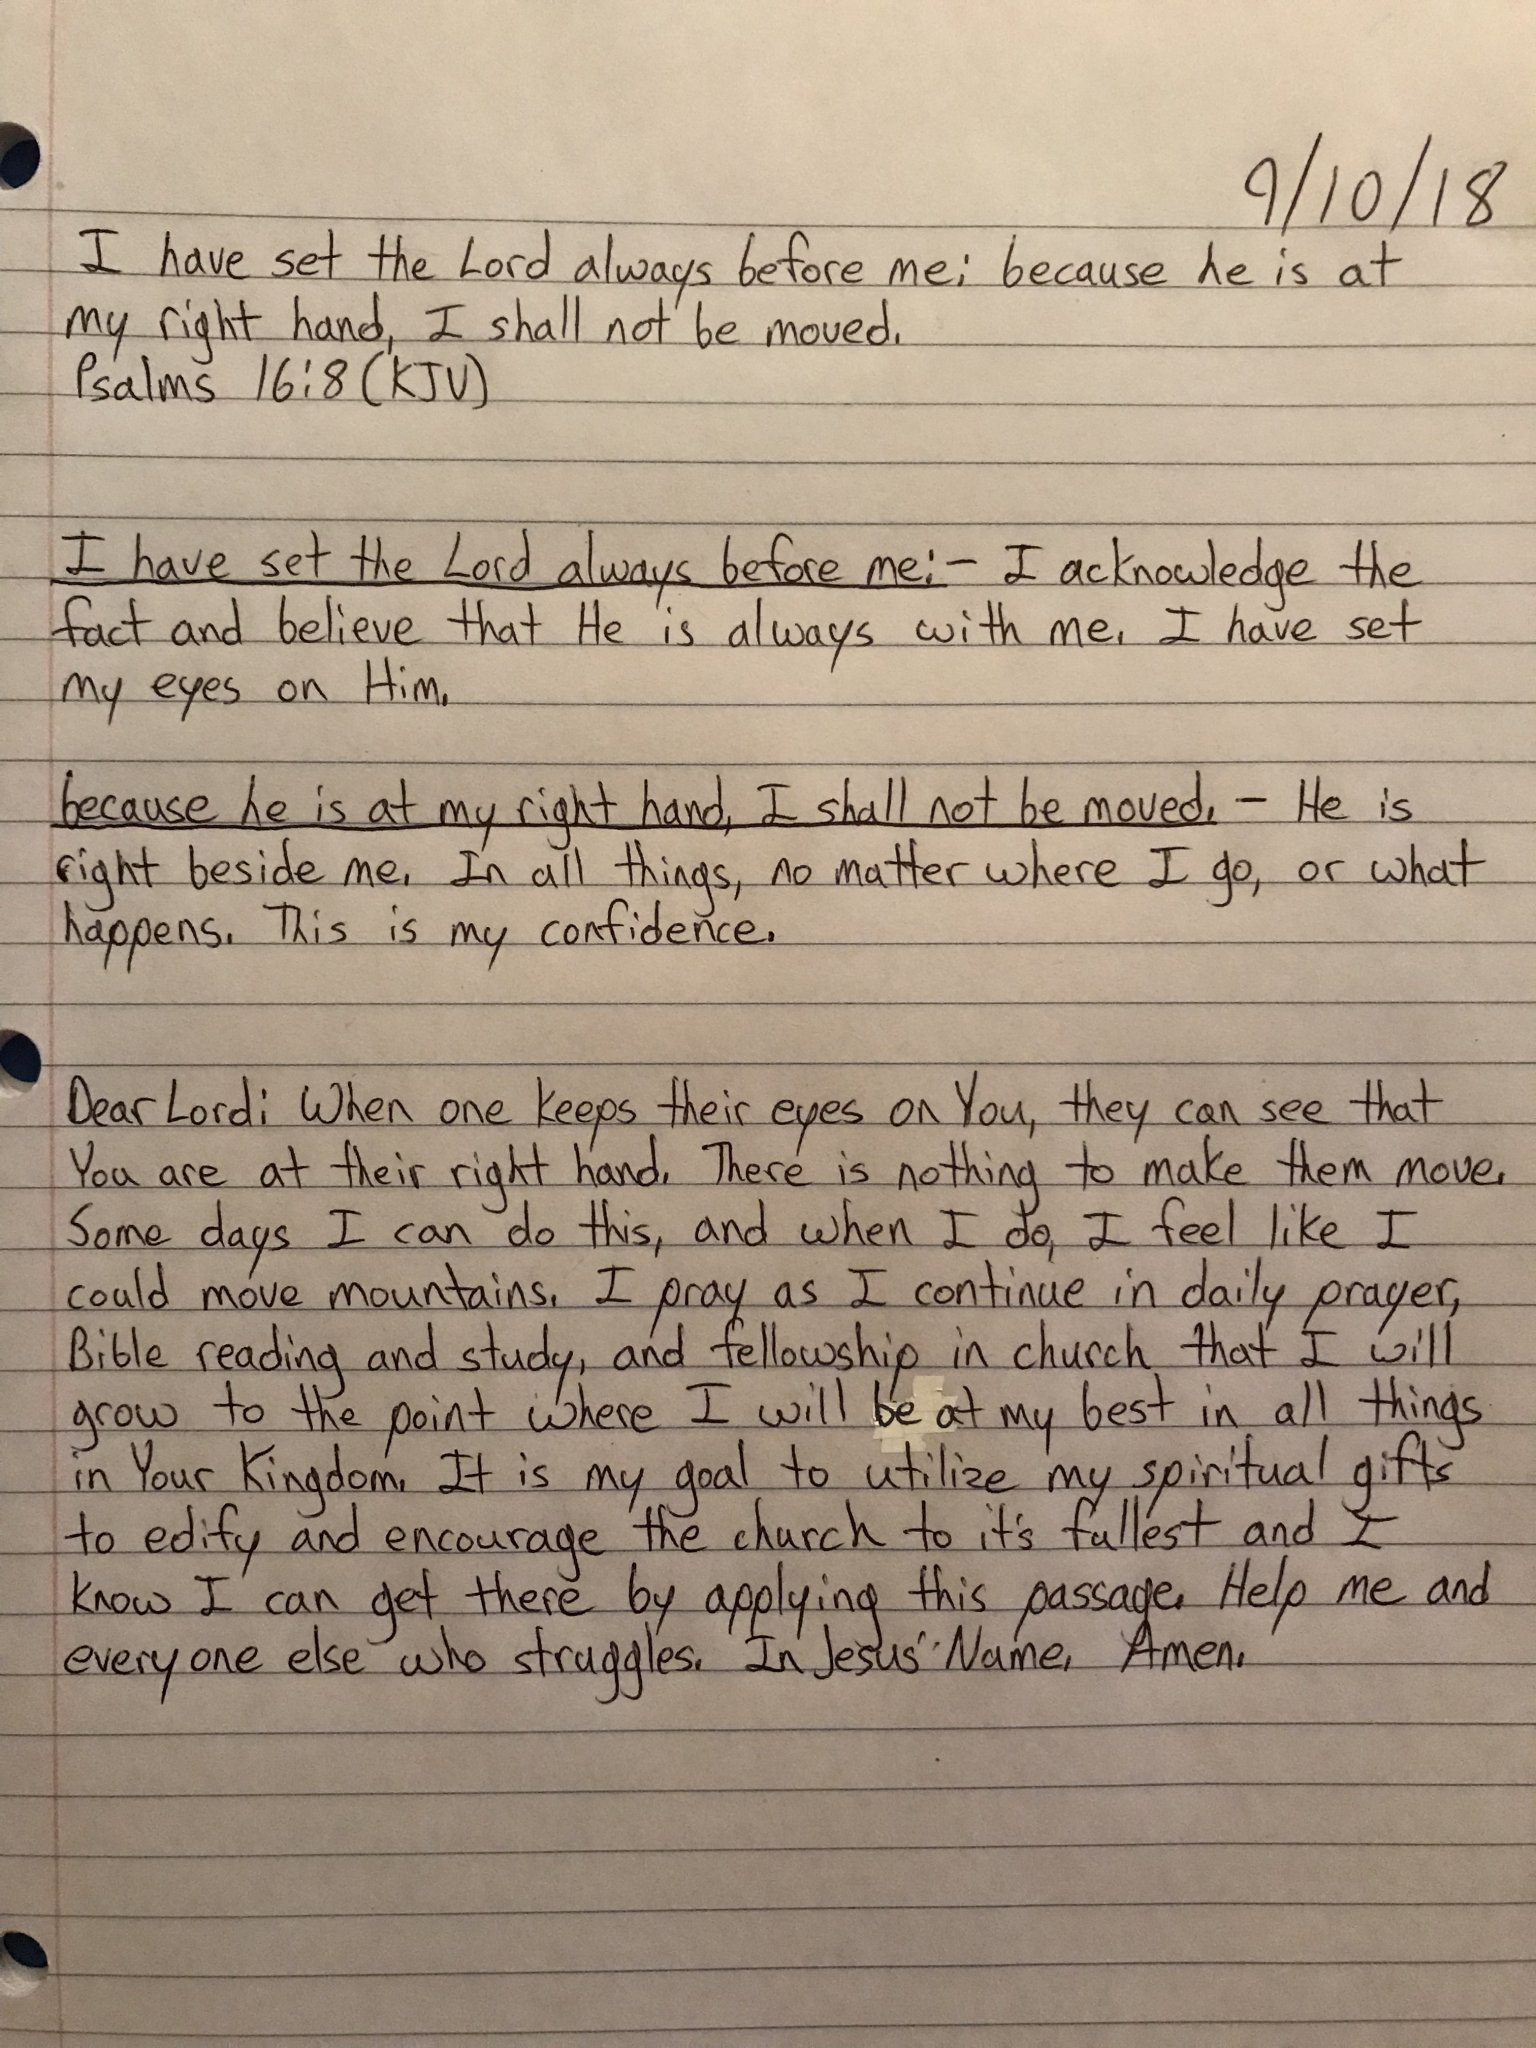 9/10/18
I have set the Lord always before me: because he is at
my right hand, I shall not be moved.
Psalms 16:8 (KJV)
I have set the Lord always before me: - I acknowledge the
fact and believe that He is always with me. I have set
my eyes on Him.
because he is at my right hand, I shall not be moved. - He is
right beside me. In all things, no matter where I go, or what
happens. This is my confidence.
Dear Lord: When one keeps their eyes on You, they can see that
You are at their right hand. There is nothing to make them move.
Some days I can do this, and when I do, I feel like I
could move mountains. I pray as I continue in daily prayer,
Bible reading and study, and fellowship in church that I will
grow to the point where I will be at my best in all things
in Your Kingdom. It is my goal to utilize my spiritual gifts
to edify and encourage the church to it's fullest and I
know I can get there by applying this passage. Help me and
everyone else who struggles. In Jesus' Name. Amen.